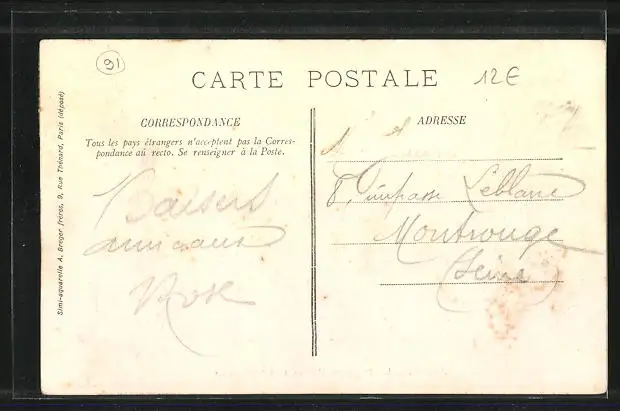 91
CARTE POSTALE
12€
CORRESPONDANCE
Tous les pays étrangers n'acceptent pas la Corres-
pondance au recto. Se renseigner à la Poste.
ADRESSE
8, impasse Leblanc
Montrouge
(Seine)
Baisers
amicaux
Rose
Simi-aquarelle A. Breger frères, 9, Rue Thénard, Paris (déposé)